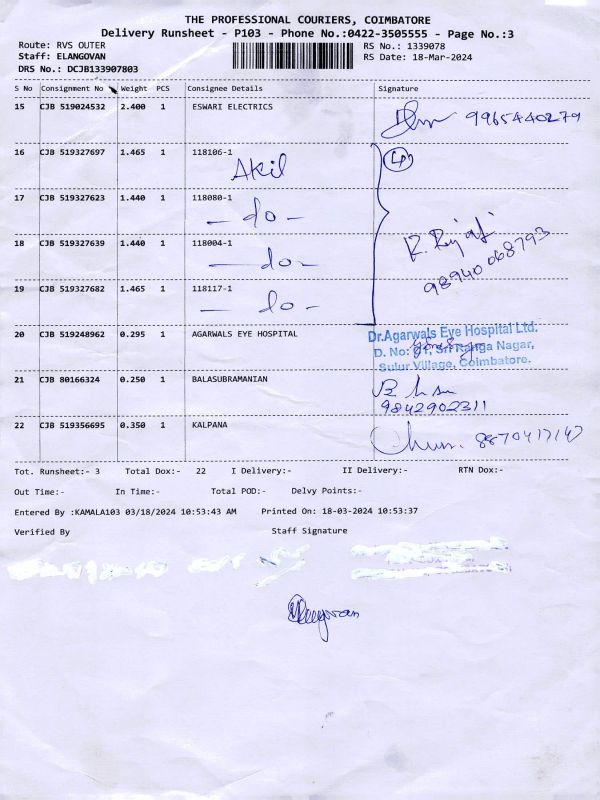 THE PROFESSIONAL COURIERS, COIMBATORE
Delivery Runsheet - P103 - Phone No.:0422-3505555 - Page No.:3
Route: RVS OUTER
RS No.: 1339078
Staff: ELANGOVAN
RS Date: 18-Mar-2024
DRS No.: DCJB133907803
S No Consignment No Weight PCS Consignee Details Signature
15 CJB 519024532 2.400 1 ESWARI ELECTRICS
9965440279
16 CJB 519327697 1.465 1 118106-1
Akil
17 CJB 519327623 1.440 1 118080-1
- do -
18 CJB 519327639 1.440 1 118004-1
- do -
98940 068793
19 CJB 519327682 1.465 1 118117-1
- do -
20 CJB 519248962 0.295 1 AGARWALS EYE HOSPITAL
Dr.Agarwals Eye Hospital Ltd.
D. No: Sri Ranga Nagar,
Sulur Village, Coimbatore.
21 CJB 80166324 0.250 1 BALASUBRAMANIAN
9842902311
22 CJB 519356695 0.350 1 KALPANA
Tot. Runsheet:- 3 Total Dox:- 22 I Delivery:- II Delivery:- RTN Dox:-
Out Time:- In Time:- Total POD:- Delvy Points:-
Entered By :KAMALA103 03/18/2024 10:53:43 AM Printed On: 18-03-2024 10:53:37
Verified By Staff Signature